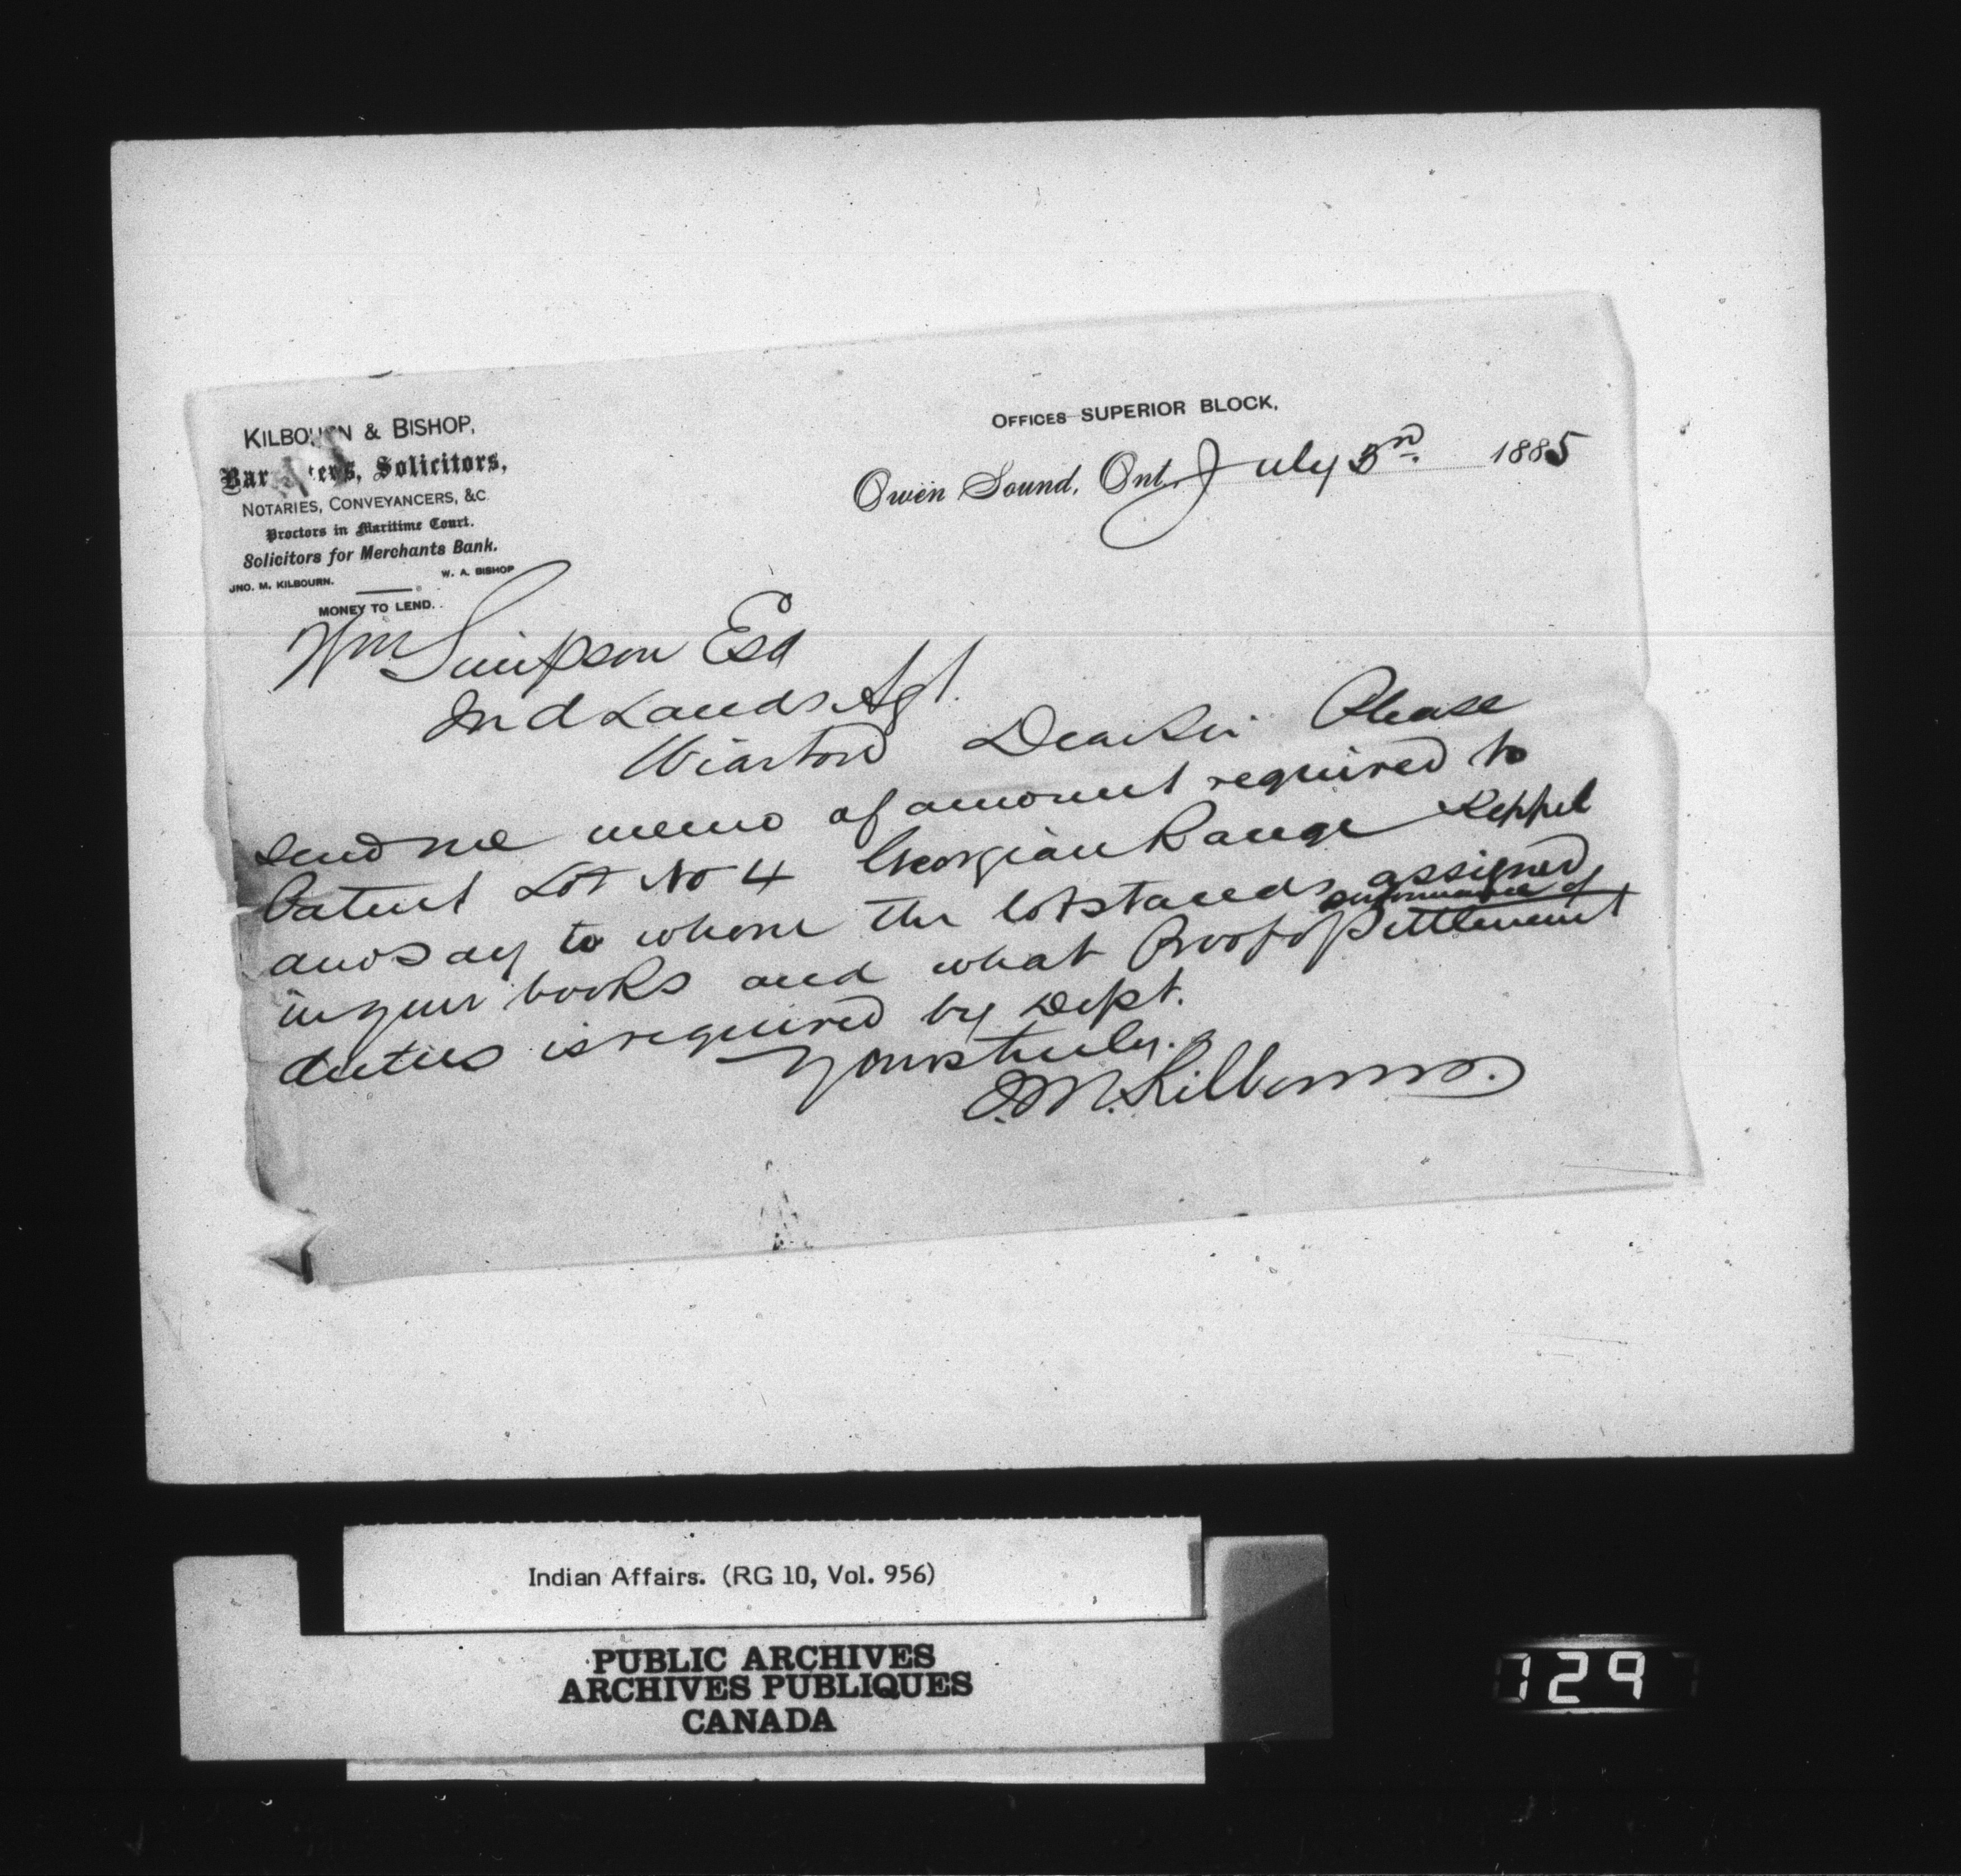 KILBOURN & BISHOP,
Barristers, Solicitors,
NOTARIES, CONVEYANCERS, &C
Proctors in Maritime Court.
Solicitors for Merchants Bank.
JNO. M. KILBOURN. W. A. BISHOP
MONEY TO LEND.
OFFICES SUPERIOR BLOCK,
Owen Sound, Ont. July 3rd 1885
Wm Simpson Esq
Ind Lands Agt.
Wiarton Dear Sir Please
send me memo of amount required to
Patent Lot No 4 Georgian Range Keppel
and say to whom the lot stands assigned
performance of
in your books and what Proof of settlement
duties is required by Dept.
Yours truly.
J. M. Kilbourn.
Indian Affairs. (RG 10, Vol. 956)
PUBLIC ARCHIVES
ARCHIVES PUBLIQUES
CANADA
129